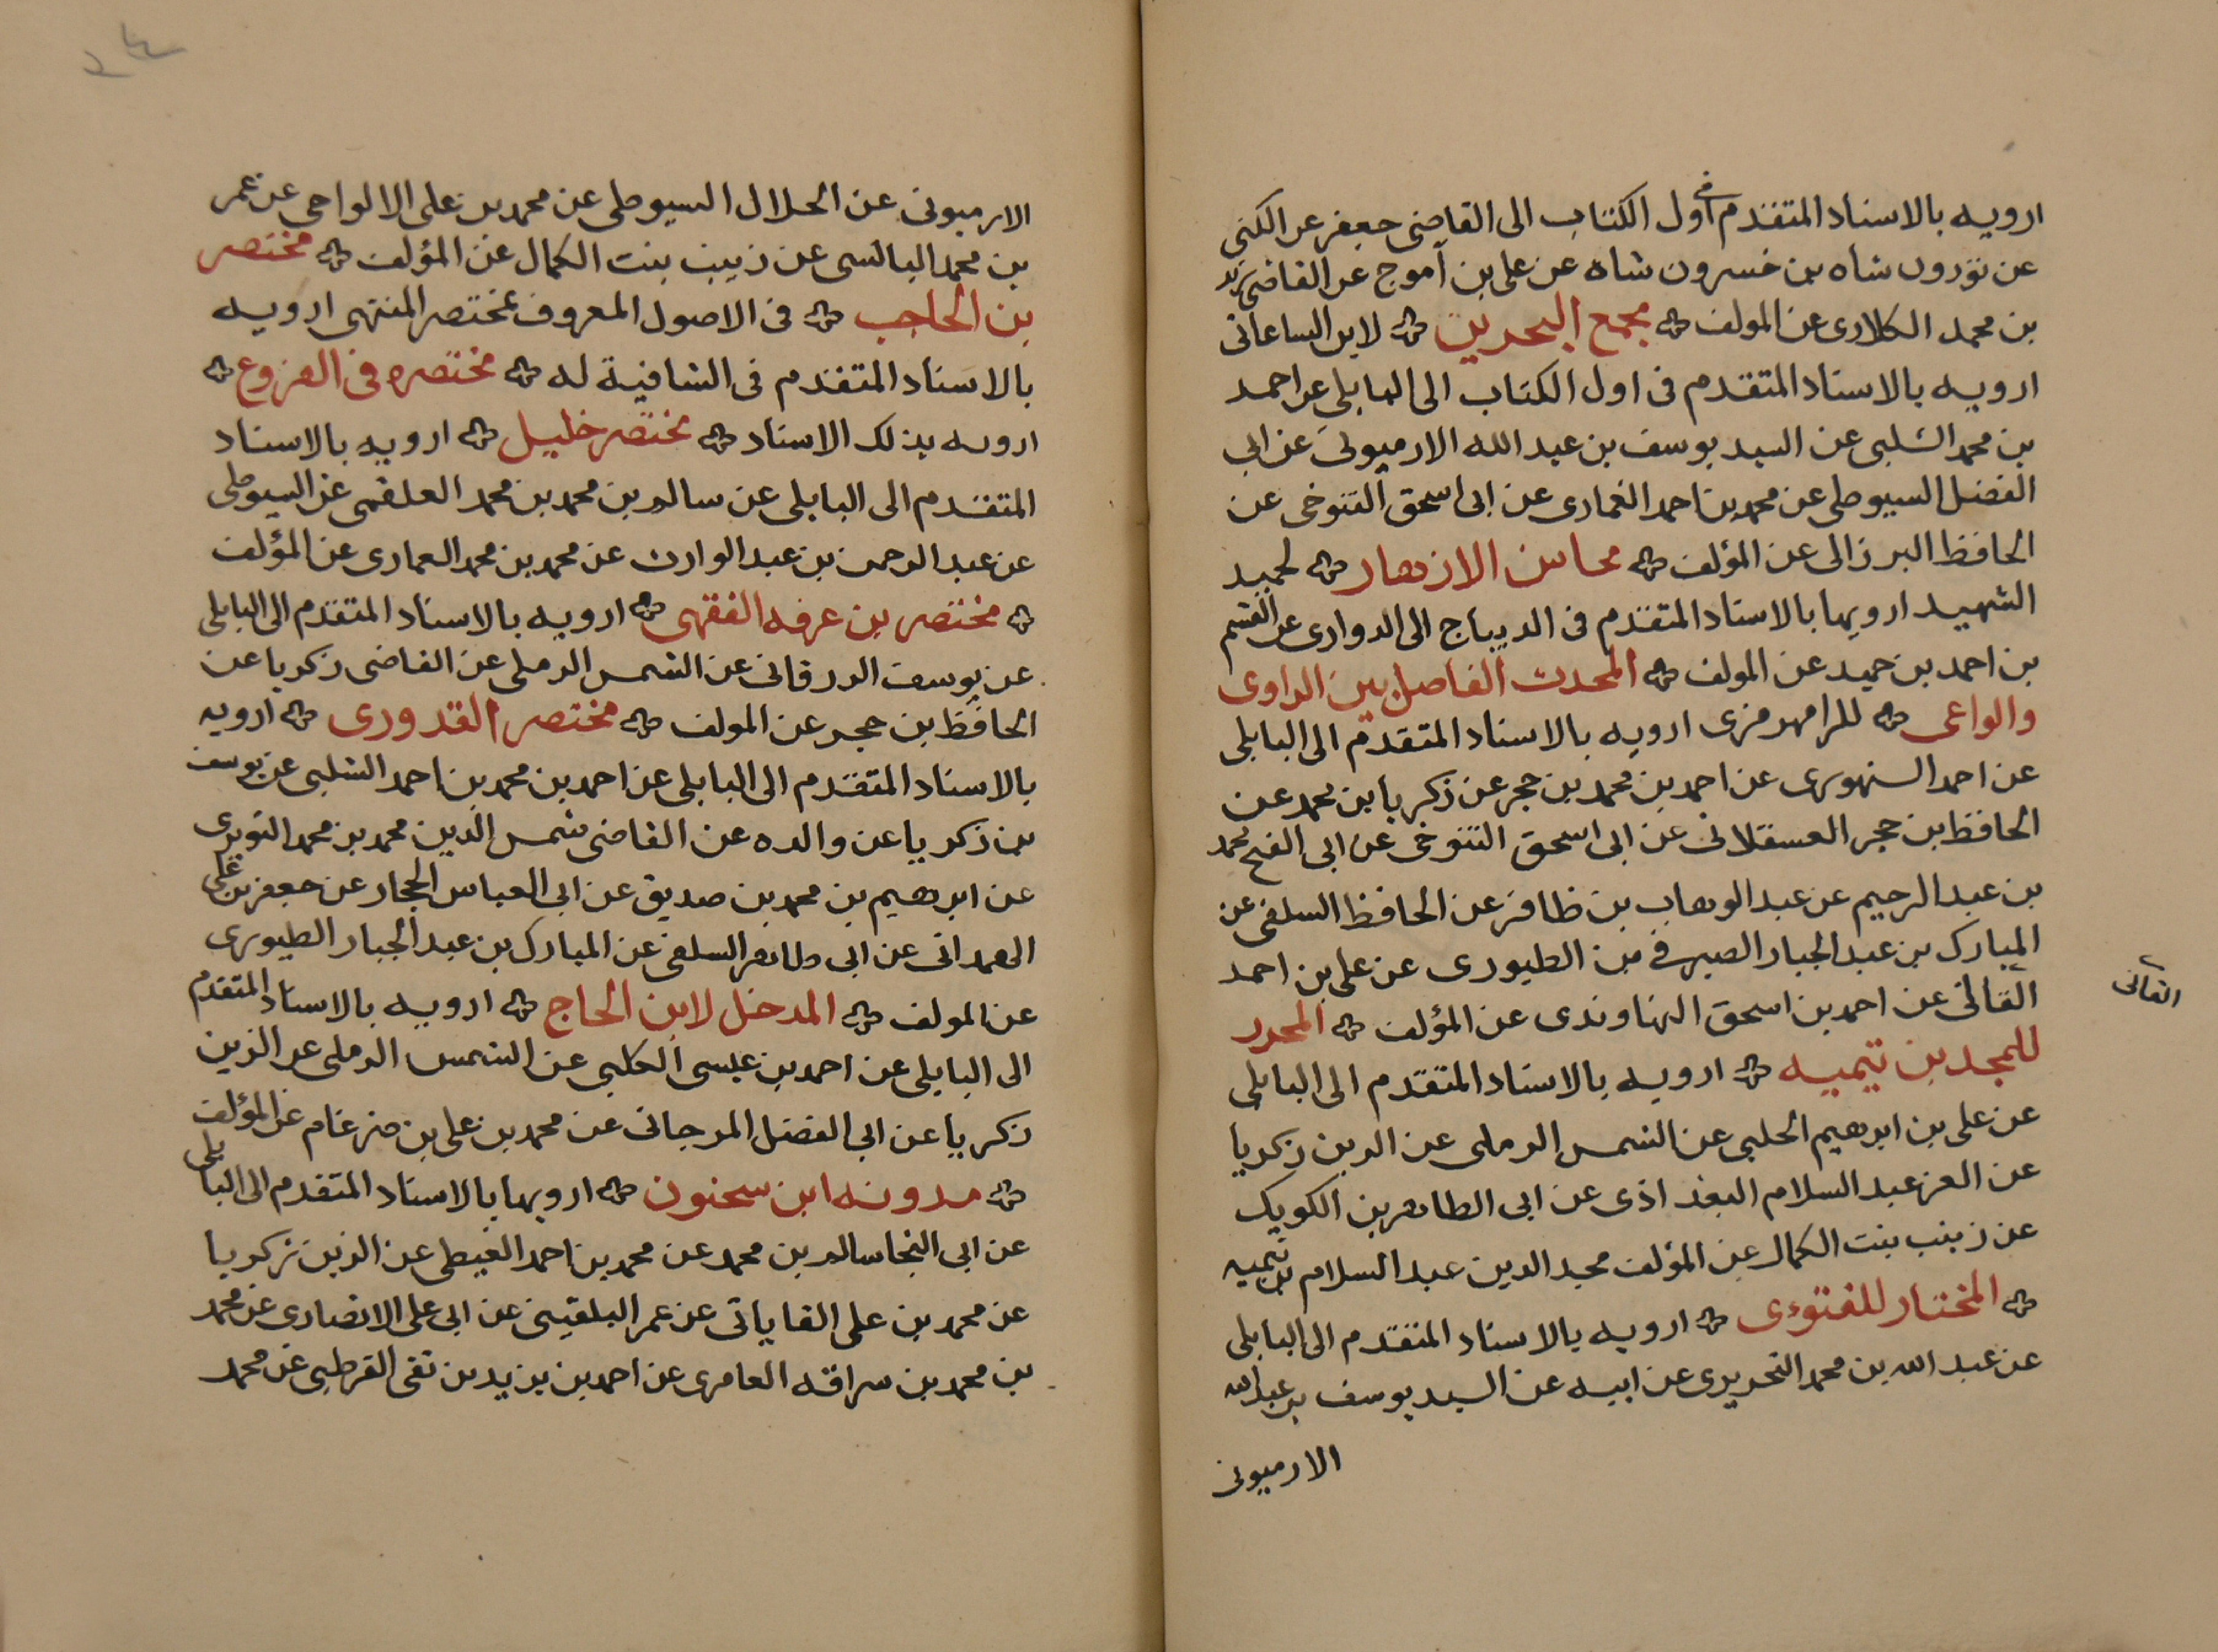 ارويه بالاسناد المتقدم في اول الكتاب الى القاضى جعفر عن الكنى
عن نوردن شاه بن خسرون شاه عن على بن آموج عن القاضى زيد
بن محمد الكلارى عن المولف مجمع البحرين لابن الساعاتى
ارويه بالاسناد المتقدم فى اول الكتاب الى البابلى عن احمد
بن محمد الشلبى عن السيد يوسف بن عبد الله الارميونى عن ابى
الفضل السيوطى عن محمد بن احمد الغمارى عن ابى اسحق التنوخى عن
الحافظ البرزالى عن المؤلف محاسن الازهار لحميد
الشهيد ارويها بالاسناد المتقدم فى الديباج الى الدوارى عن القسم
بن احمد بن حميد عن المولف المحدث الفاصل بين الراوى
والواعى للرامهرمزى ارويه بالاسناد المتقدم الى البابلى
عن احمد السنهورى عن احمد بن محمد بن حجر عن زكريا بن محمد عن
الحافظ بن حجر العسقلانى عن ابى اسحق التنوخى عن ابى الفتح محمد
بن عبد الرحيم عن عبد الوهاب بن ظافر عن الحافظ السلفى عن
المبارك بن عبد الجبار الصيرفى من الطيورى عن على بن احمد
الفالى عن احمد بن اسحق النهاوندى عن المؤلف المحرر
الفالى
للمجد بن تيميه ارويه بالاسناد المتقدم الى البابلى
عن على بن ابرهيم الحلبى عن الشمس الرملى عن الدين زكريا
عن العز عبد السلام البغداذى عن ابى الطاهر بن الكويك
عن زينب بنت الكمال عن المؤلف مجد الدين عبد السلام بن تيميه
المختار للفتوى ارويه بالاسناد المتقدم الى البابلى
عن عبد الله بن محمد النحريرى عن ابيه عن السيد يوسف بن عبد الله
الارميونى
الارميونى عن الجلال السيوطى عن محمد بن على الالواحى عن عمر
بن محمد البالسى عن زينب بنت الكمال عن المؤلف مختصر
بن الحاجب فى الاصول المعروف بمختصر المنتهى ارويه
بالاسناد المتقدم فى الشافية له مختصره فى الفروع
ارويه بذلك الاسناد مختصر خليل ارويه بالاسناد
المتقدم الى البابلى عن سالم بن محمد بن محمد العلقمى عن السيوطى
عن عبد الرحمن بن عبد الوارث عن محمد بن محمد الغمارى عن المؤلف
مختصر بن عرفه الفقهى ارويه بالاسناد المتقدم الى البابلى
عن يوسف الزرقانى عن الشمس الرملى عن القاضى زكريا عن
الحافظ بن حجر عن المولف مختصر القدورى ارويه
بالاسناد المتقدم الى البابلى عن احمد بن محمد بن احمد الشلبى عن يوسف
بن زكريا عن والده عن القاضى شمس الدين محمد بن محمد النويرى
عن ابرهيم بن محمد بن صديق عن ابى العباس الحجار عن جعفر بن على
الهمدانى عن ابى طاهر السلفى عن المبارك بن عبد الجبار الطيورى
عن المولف المدخل لابن الحاج ارويه بالاسناد المتقدم
الى البابلى عن احمد بن عيسى الكلبى عن الشمس الرملى عن الزين
زكريا عن ابى الفضل المرجانى عن محمد بن على بن ضرغام عن المؤلف
مدونه ابن سحنون ارويها بالاسناد المتقدم الى البابلى
عن ابى النجا سالم بن محمد عن محمد بن احمد الغيطى عن الزين زكريا
عن محمد بن على القاياتى عن عمر البلقينى عن ابى على الانصارى عن محمد
بن محمد بن سراقه العامرى عن احمد بن يزيد بن تقى القرطبى عن محمد